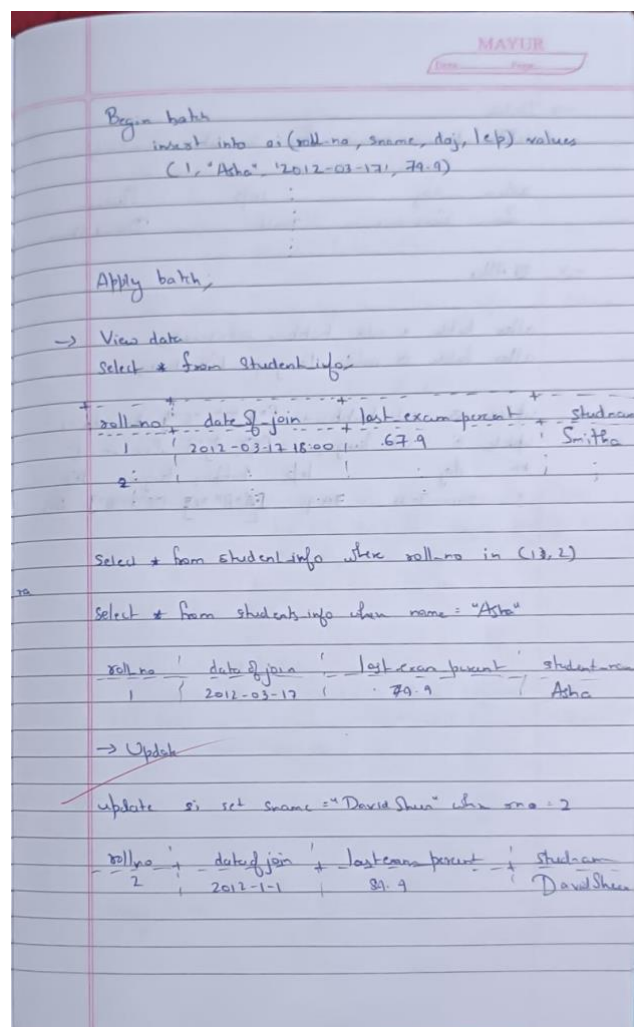 MAYUR
Date Page
Begin batch
insert into si (roll-no, sname, doj, lep) values
(1, "Asha", '2012-03-17', 79.9)
Apply batch;
→ View data
Select * from Student_info;
roll-no date of join last exam percent studnam
1 2012-03-12 18:00 67.9 Smitha
2
Select * from student_info where roll-no in (1, 2)
ra
Select * from students_info when name = "Asha"
roll no date of join last exam percent student-nam
1 2012-03-17 79.9 Asha
→ Update
update si set sname = "David Sheen" whr rno = 2
rollno date of join last exam percent studnam
2 2012-1-1 89.9 David Sheen